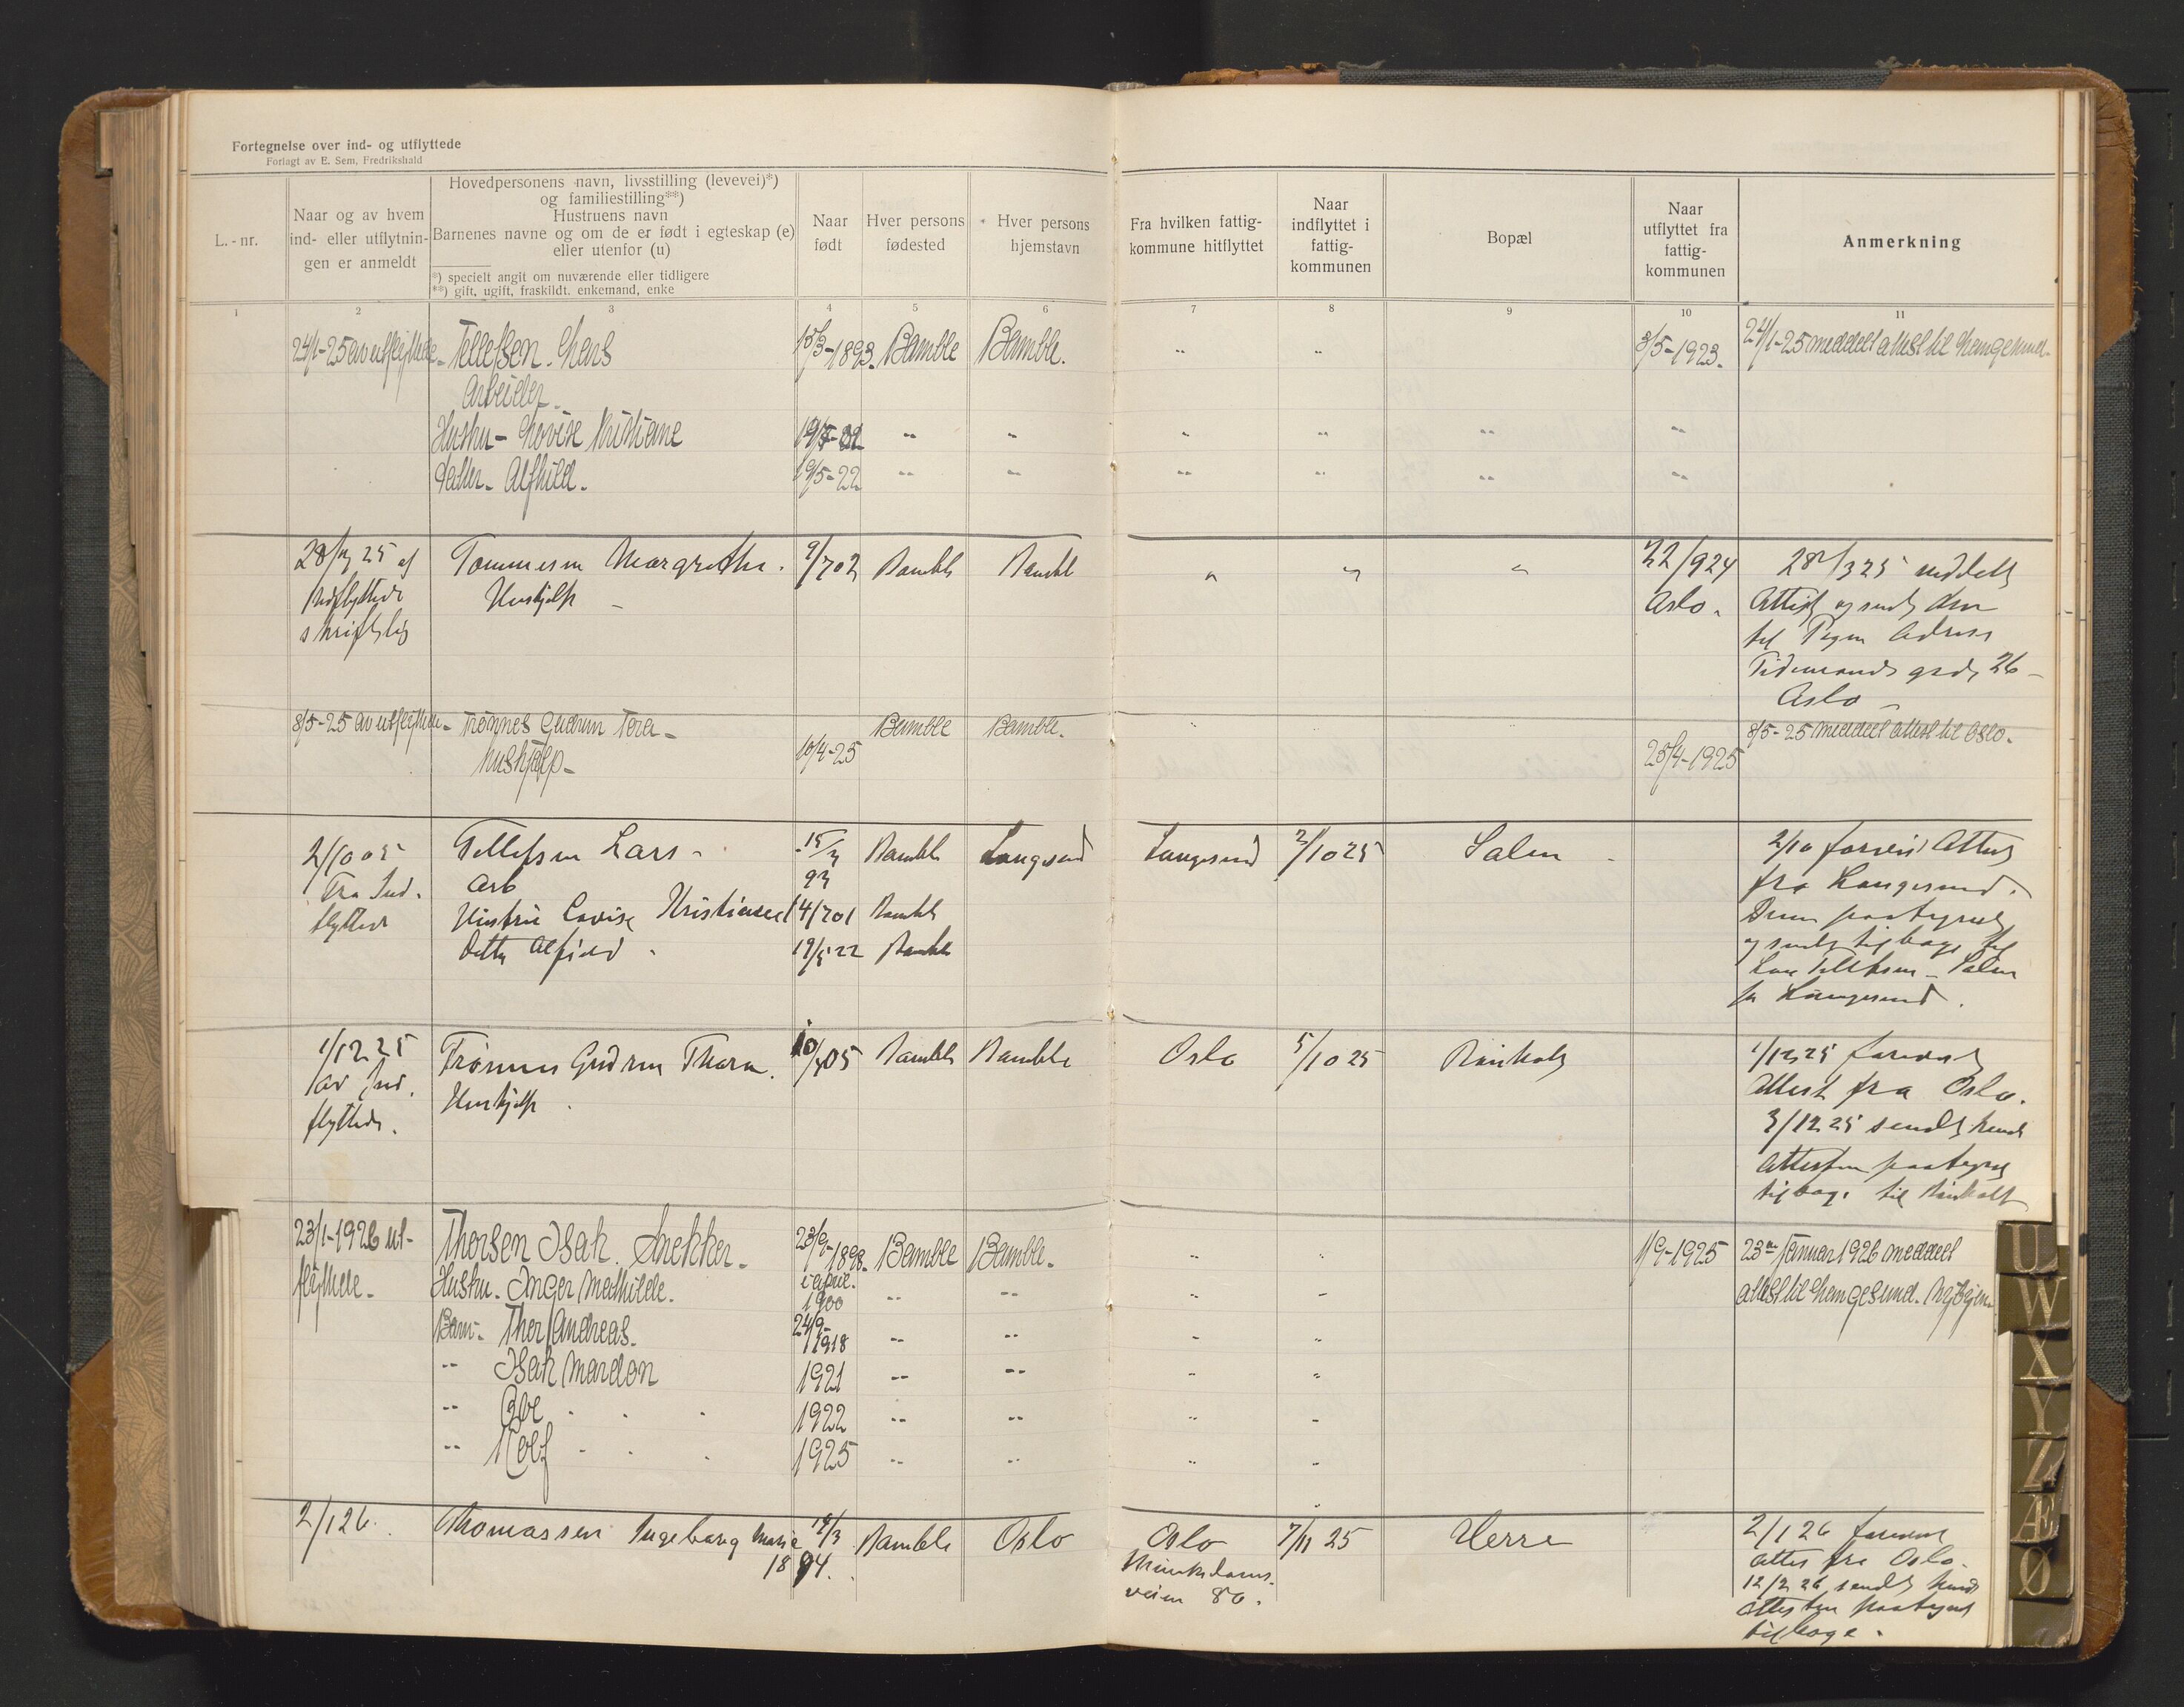 Fortegnelse over ind- og utflyttede
Forlagt av E. Sem, Fredrikshald
L.-nr.
Naar og av hvem
ind- eller utflytnin-
gen er anmeldt
Hovedpersonens navn, livsstilling (levevei)*)
og familiestilling**)
Hustruens navn
Barnenes navne og om de er født i egteskap (e)
eller utenfor (u)
*) specielt angit om nuværende eller tidligere
**) gift, ugift, fraskildt. enkemand, enke
Naar
født
Hver persons
fødested
Hver persons
hjemstavn
Fra hvilken fattig-
kommune hitflyttet
Naar
indflyttet i
fattig-
kommunen
Bopæl
Naar
utflyttet fra
fattig-
kommunen
Anmerkning
1 2 3 4 5 6 7 8 9 10 11
24/1-25 av utflyttede Tellefsen. Lars 15/3-1893. Bamble Bamble. " " 3/5-1923. 24/1-25 meddelt attest til Langesund
Arbeider
Hustru - Lovise Kristiane " " " " " "
Datter - Alfhild. 19/5-22 " " " " " "
28/3 25 af Tommesen Margrethe. 9/702 Bamble Bamble " " " 22/924 28/325 meddelt
Udflyttede Hushjelp Oslo. Attest og sendt den
skriftlig til Pigen Adresse
Tidemands gade 26
Oslo
8/5-25 av utflyttede Trønnes Gudrun Tora Bamble Bamble. " " 8/5-25 meddelt attest til Oslo.
hushjelp 10/4-25 25/4-1925
2/10 25 Tellefsen Lars 15/3 Bamble Langesund Langesund 2/10 25 Salen 2/10 forevist Attest
Fra Ind- Arb 93 fra Langesund.
flyttede Hustru Lovise Kristiane 14/701 Bamble Denne paategnet
Datter Alfhild 19/5 22 Bamble og sendt tilbage til
Lars Tellefsen - Salen
pr Langesund.
1/12 25 Trønnes Gudrun Thora. 10/405 Bamble Bamble Oslo 5/10 25 Rinholt 1/12 25 forevist
av Ind- Hushjelp Attest fra Oslo.
flyttede. 3/12 25 sendt hende
Attesten paategnet
tilbage til Rinholt
23/1-1926 ut- Thorsen Isak. Snekker 23/9-1898 Bamble Bamble. " " 1/9-1925 23de Januar 1926 meddelt
flyttede Hustru. Inger Mathilde. i april 1900 " " " " attest til Langesund.
Barn. Thor Andreas. 24/9-1918 " " " "
" Isak Mardon 1921 " " " "
" 1922 " " " "
" Rolf 1925 " " " "
2/1 26. Thomassen Ingeborg Marie 18/3 Bamble Oslo Oslo 7/11 25 Herre 2/1 26 forevist
1894. Munkedams- attest fra Oslo.
veien 86. 12/2 26 sendt hende
attesten paategnet
tilbage.
U
W
X
Y
Z
Æ
Ø